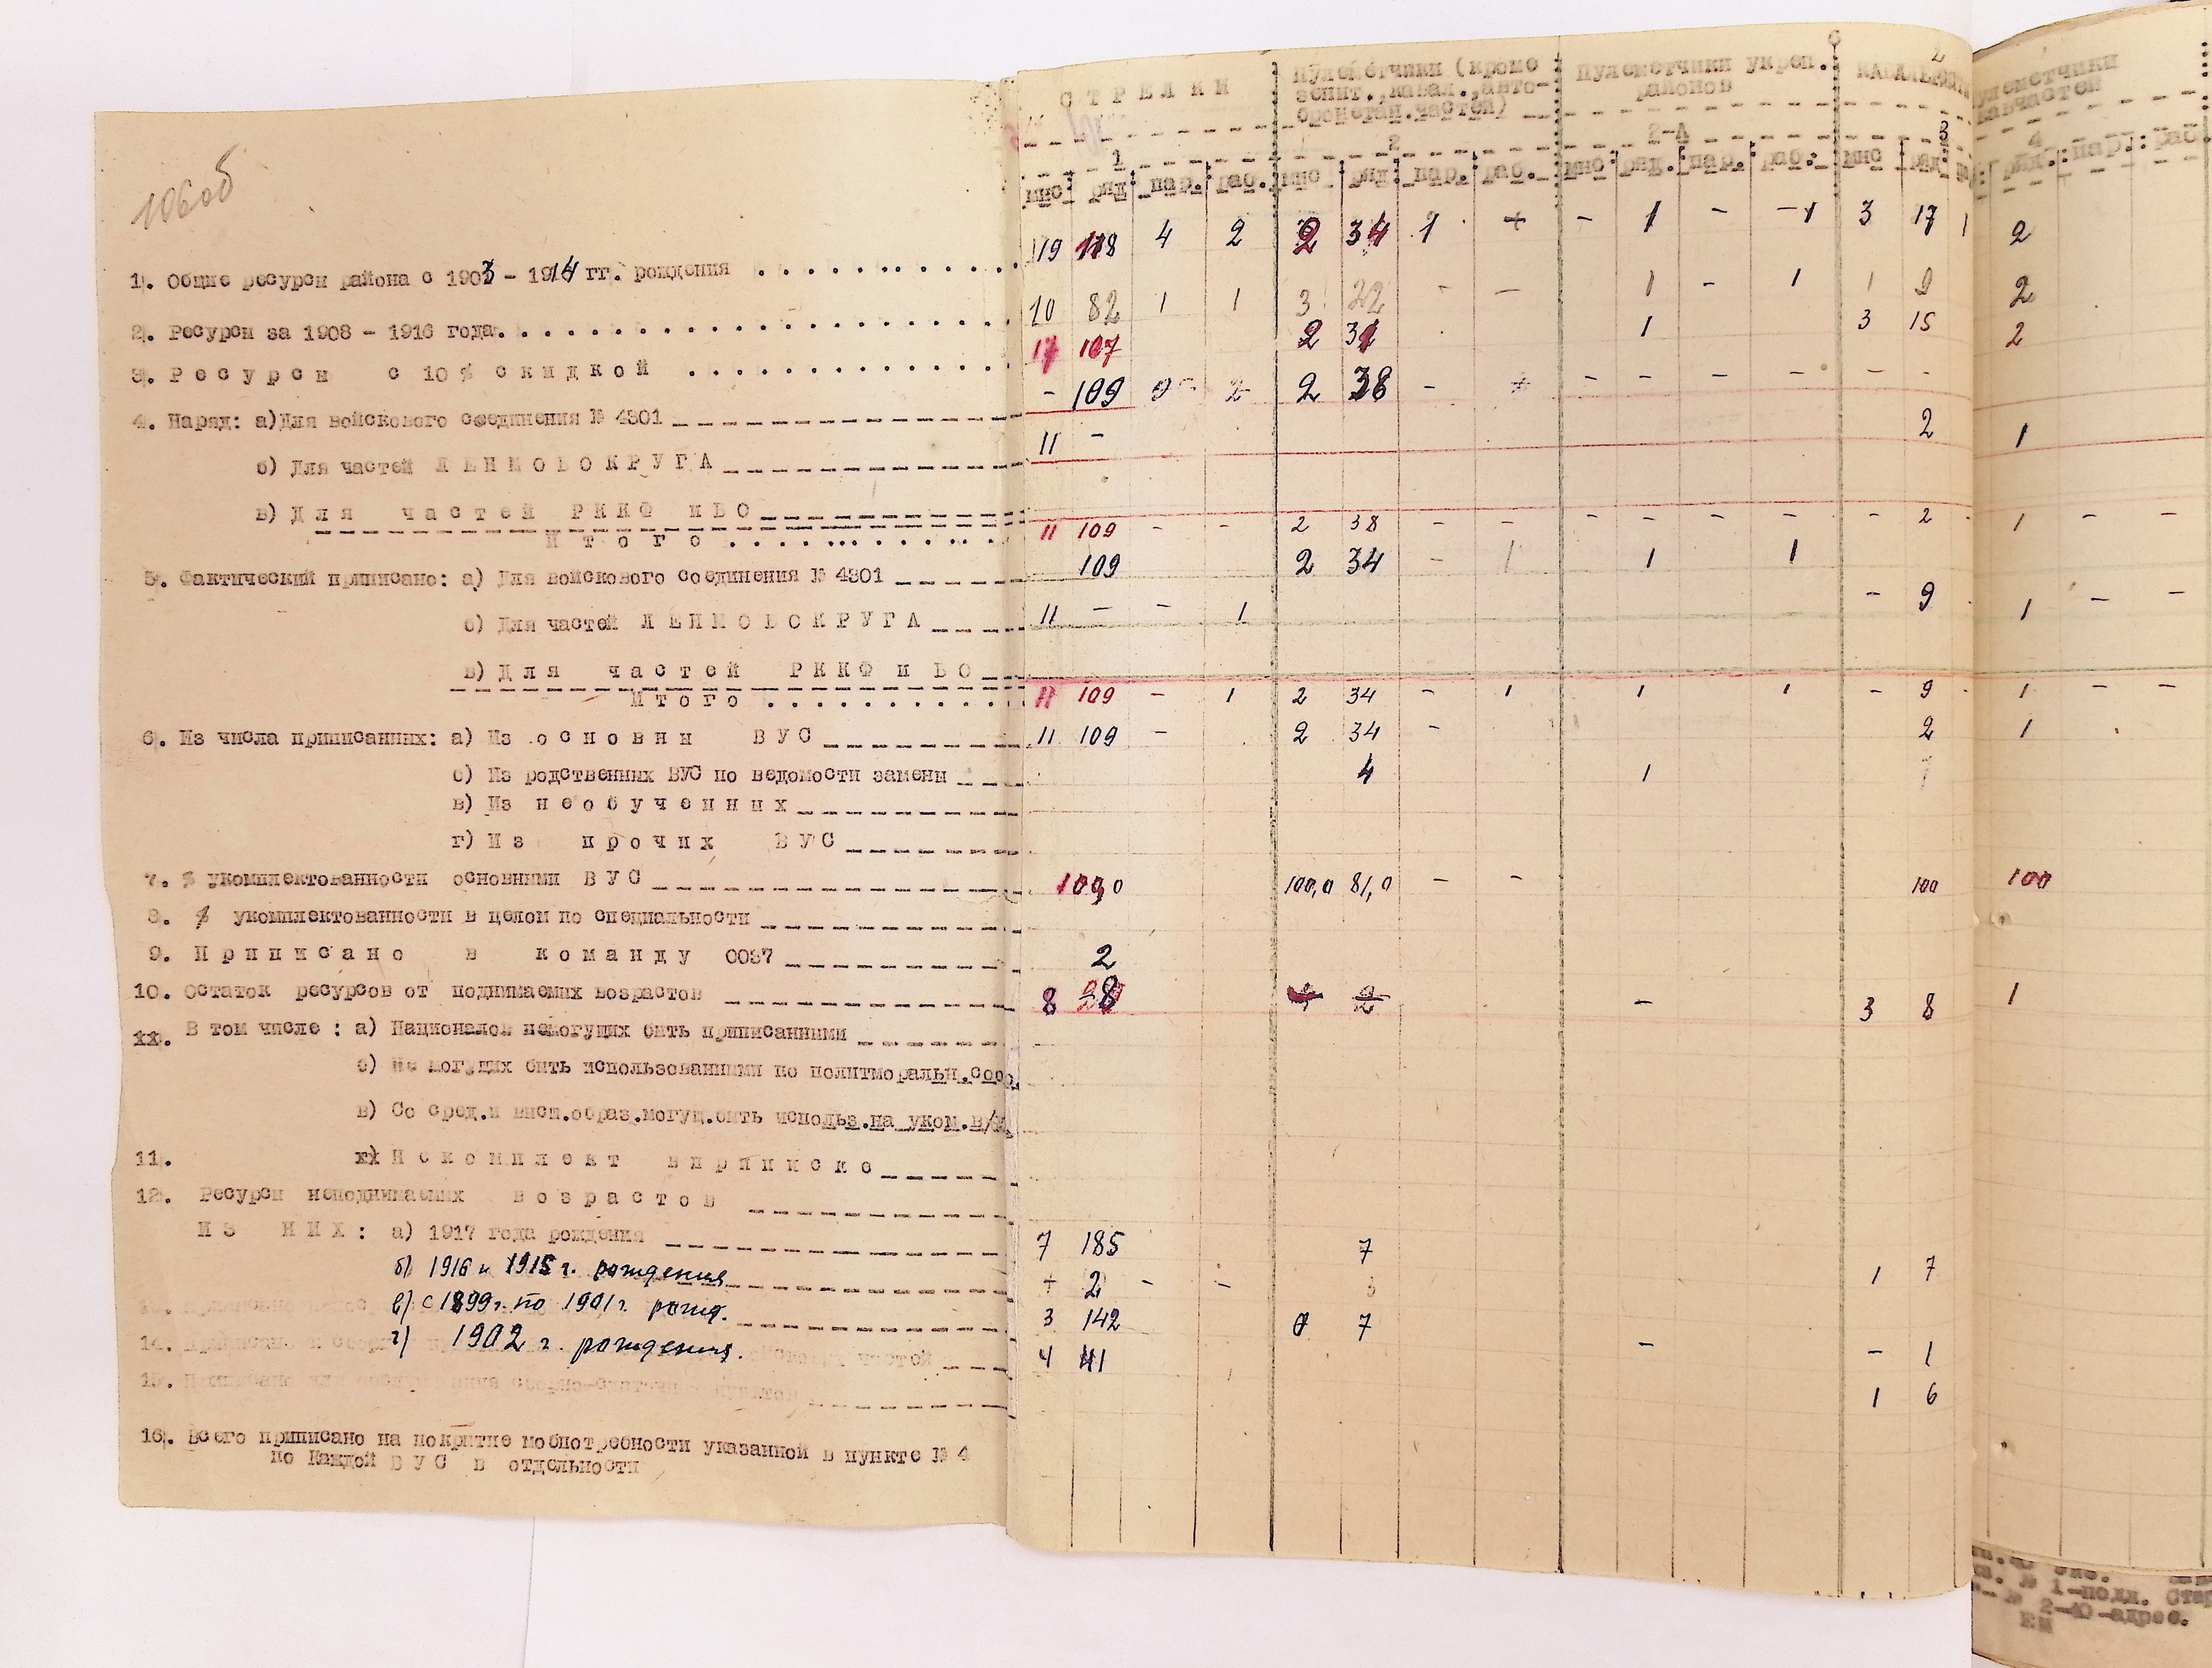 106об
1. Общие ресурсы района с 1903 - 1914 гг. рождения
2. Ресурсы за 1908 - 1916 года.
3. Ресурсы с 10 % скидкой
4. Наряд: а) Для войскового соединения № 4301
б) Для частей ЛЕНМОВОКРУГА
в) Для частей РККФ и ВО
Итого
5. Фактический приписано: а) Для войскового соединения № 4301
б) Для частей ЛЕНМОВОКРУГА
в) Для частей РККФ и ВО
Итого
6. Из числа приписанных: а) Из основны ВУС
б) Из родственных ВУС по ведомости замены
в) Из необученных
г) Из прочих ВУС
7. % укомплектованности основными ВУС
8. % укомплектованности в целом по специальности
9. Приписано в команду 0037
10. Остаток ресурсов от поднимаемых возрастов
хх. В том числе : а) Националов немогущих быть приписанными
б) Не могущих быть использованными по политморальн.соо
в) Со сред.и высш.образ.могущ.быть использ.на уком.в/
11. Некомплект вприписке
12. Ресурсы неподнимаемых возрастов
ИЗ НИХ: а) 1917 года рождения
б) 1916 и 1915 г. рождения
в) с 1899 г. по 1901 г. рожд.
14. г) 1902 г. рождения.
15.
16. Всего приписано на покрытие мобпотребности указанной в пункте № 4
по Каждой ВУС в отдельности
СТРЕЛКИ Пулеметчики (кроме зенит.,кавал.,авто-бронетан.частей) Пулеметчики укреп. районов 2
1 2 2-А 3 4
мнс ряд пар. раб. мнс ряд пар. раб. мнс ряд. пар. раб. мнс ряд ряд. пар. раб
119 118 4 2 2 34 1 + - 1 - -1 3 17 1 2
10 82 1 1 3 22 - - 1 - 1 1 9 2
17 107 2 31 1 3 15 2
- 109 2 38 - - - - - - -
11 - 2 1
11 109 - - 2 38 - - - - - - - 2 - 1 - -
109 2 34 - 1 1 1
11 - - 1 - 9 1 - -
11 109 - 1 2 34 - 1 1 1 - 9 - 1 - -
11 109 - 2 34 - 2 1
4 1 7
100,0 100,0 81,0 - - 100 100
2
8 - 3 8 1
7 185 7
+ 2 - - 1 7
3 142 0 7
4 41 - - 1
1 6
№ 1-подл. Стар
№ 2-40-адрес.
ЕМ